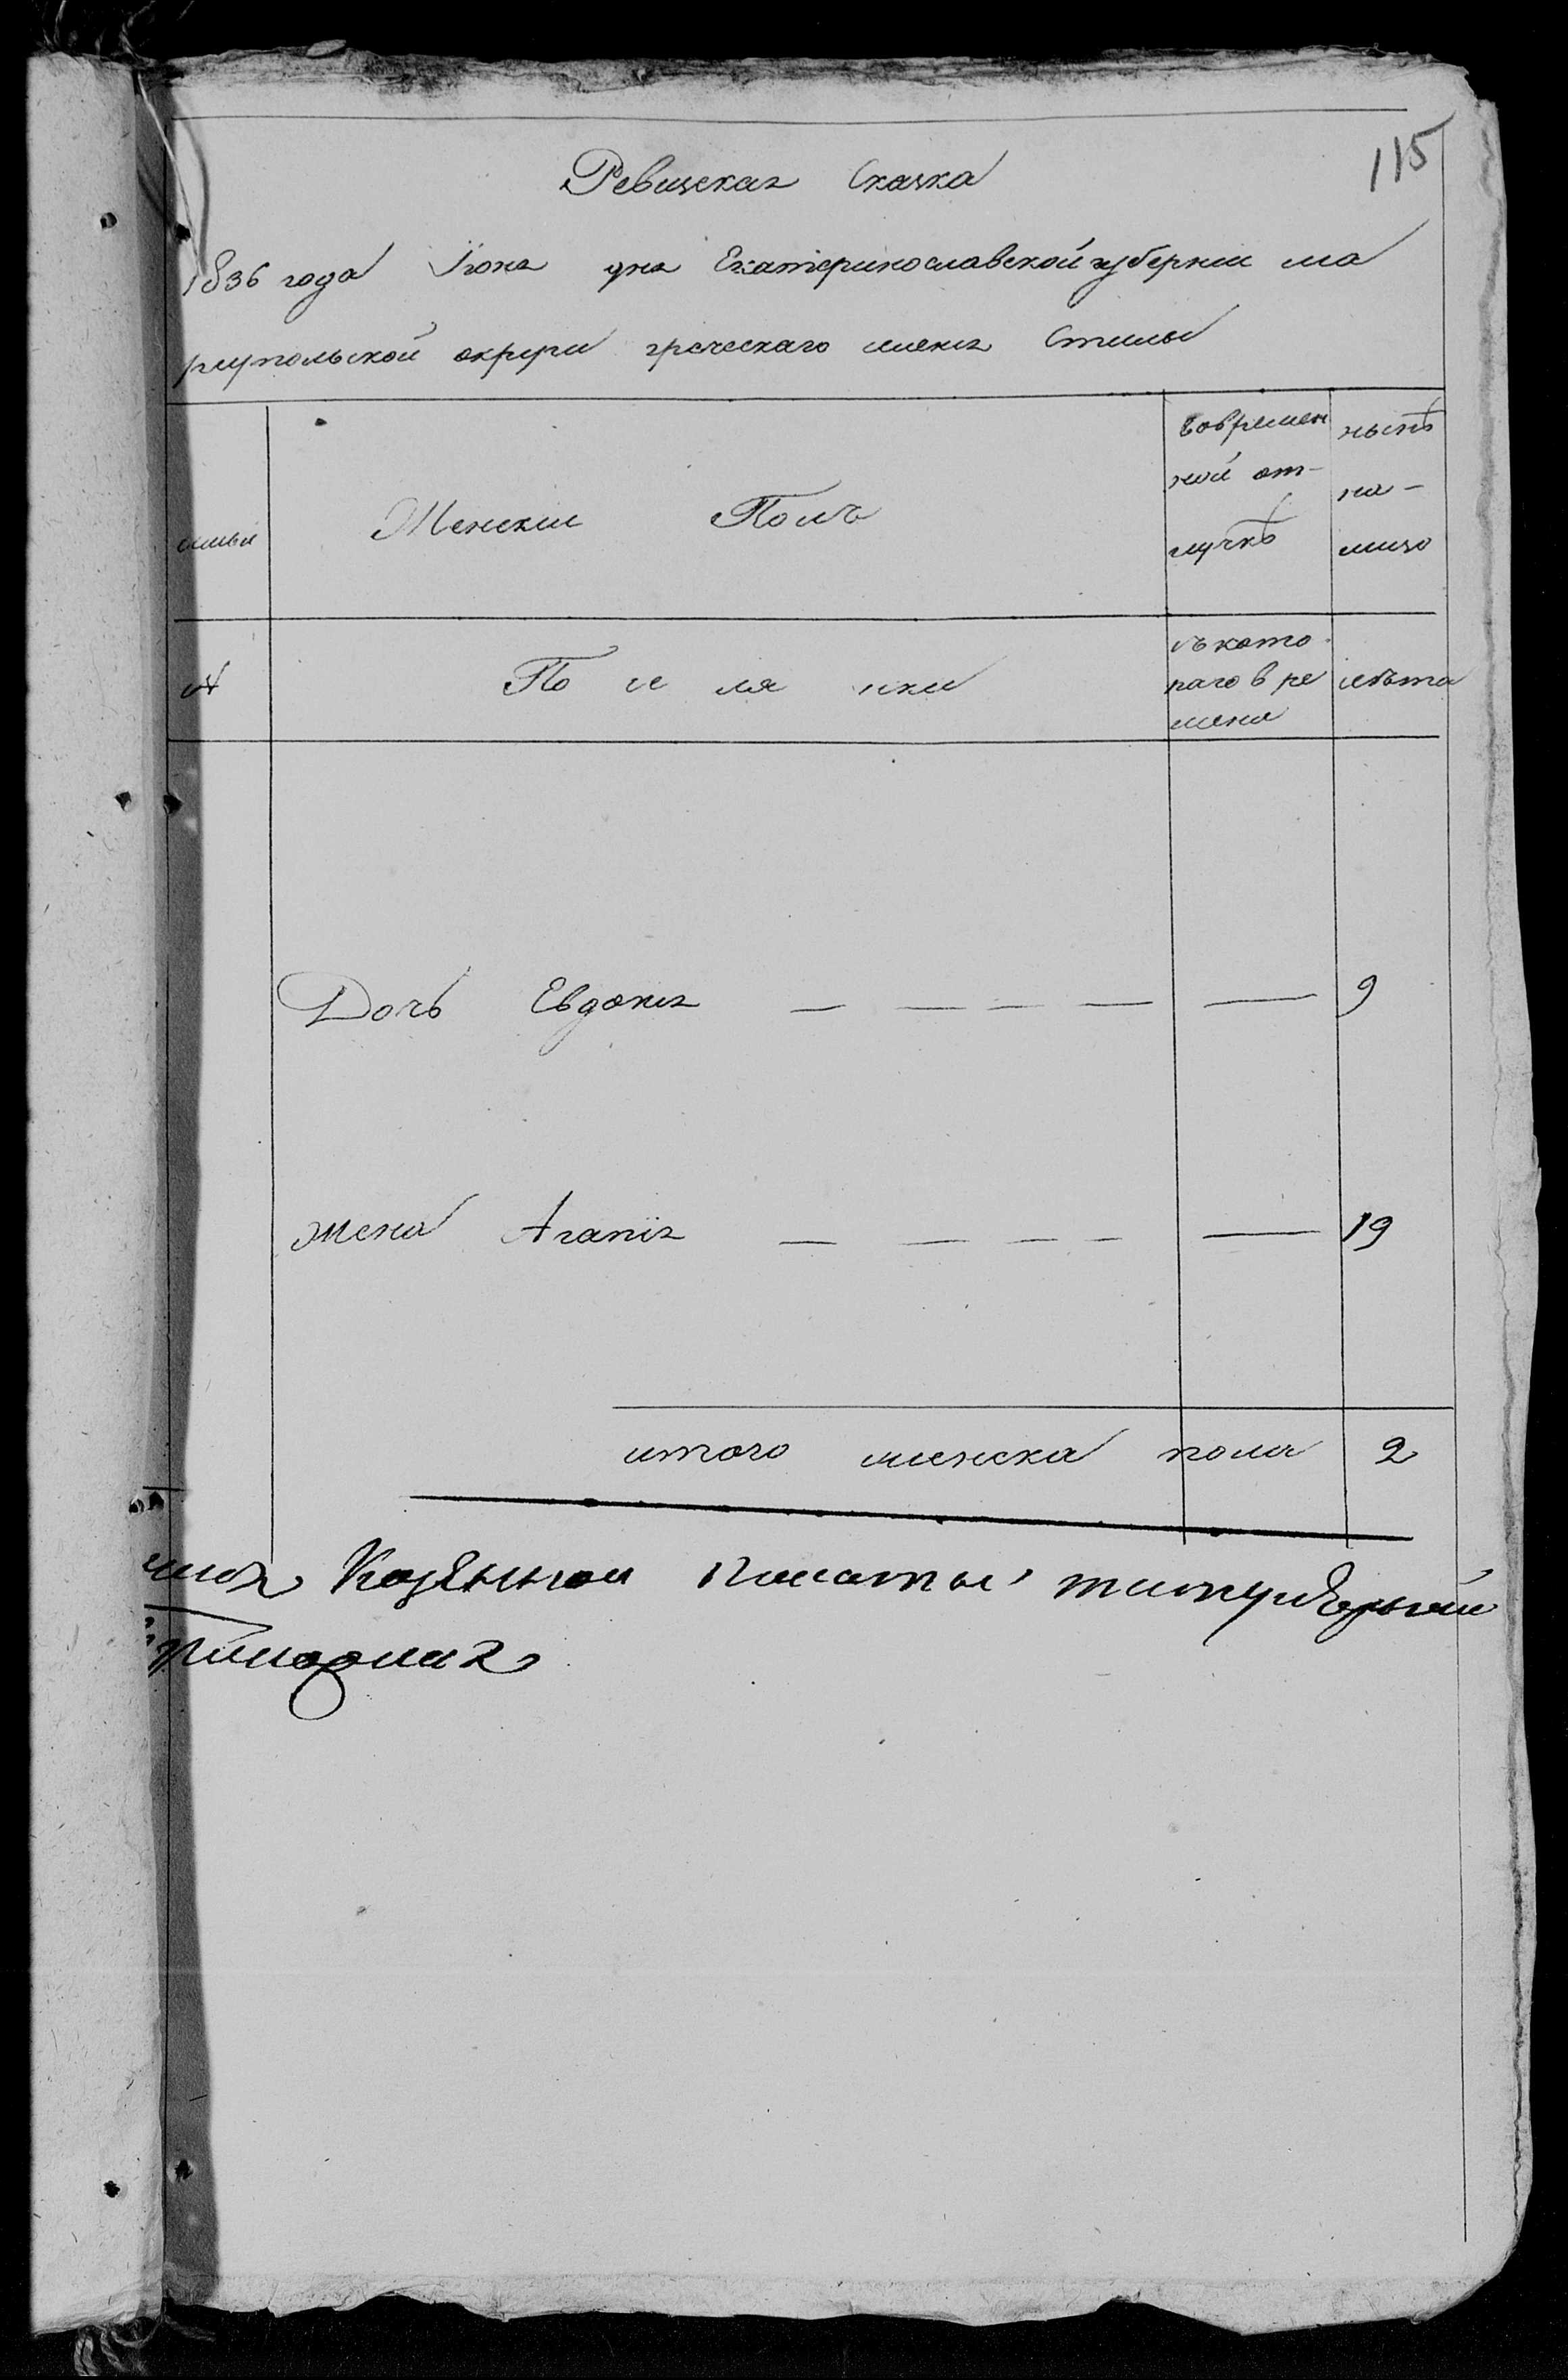 115
Ревизская Сказка
1836 года Іюня дня Екатеринославской губерніи ма
риупольской округи греческаго имения Стилы
семьи
Женскии Полъ
Вовремен
ной от-
лучкѣ
нынѣ
на-
лицо
№
По се ля нки
съ кото
раго вре
мени
лѣта
Дочь Евдокия — — — — — 9
Жена Агапія — — — — — 19
итого женска пола 2
Казенной Палаты титулярный